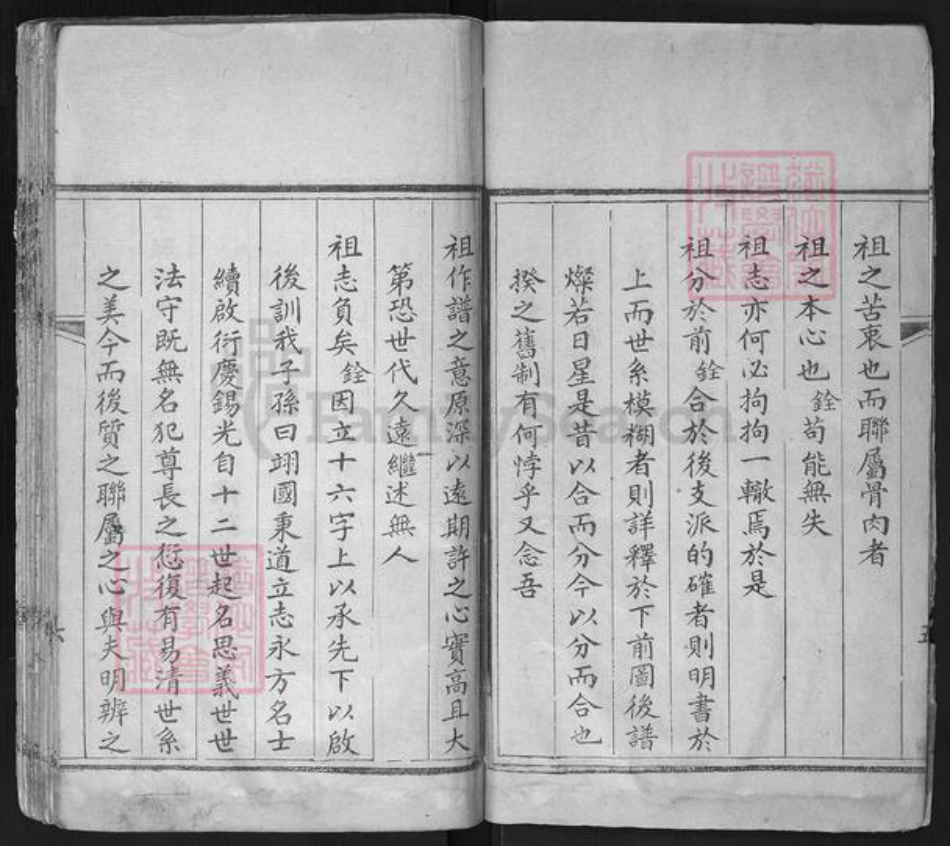 祖之苦衷也而聯屬骨肉者
祖之本心也銓苟能無失
祖志亦何必拘拘一轍焉於是
祖分於前銓合於後支派的確者則明書於
上而世系模糊者則詳釋於下前圖後譜
燦若日星是昔以合而分今以分而合也
揆之舊制有何悖乎又念吾
祖作譜之意原深以遠期許之心實高且大
第恐世代久遠繼述無人
祖志負矣銓因立十六字上以承先下以啟
後訓我子孫曰翊國秉道立志永方名士
續啟衍慶錫光自十二世起名思義世世
法守既無名犯尊長之愆復有易清世系
之美今而後質之聯屬之心與夫明辨之
FamilySearch